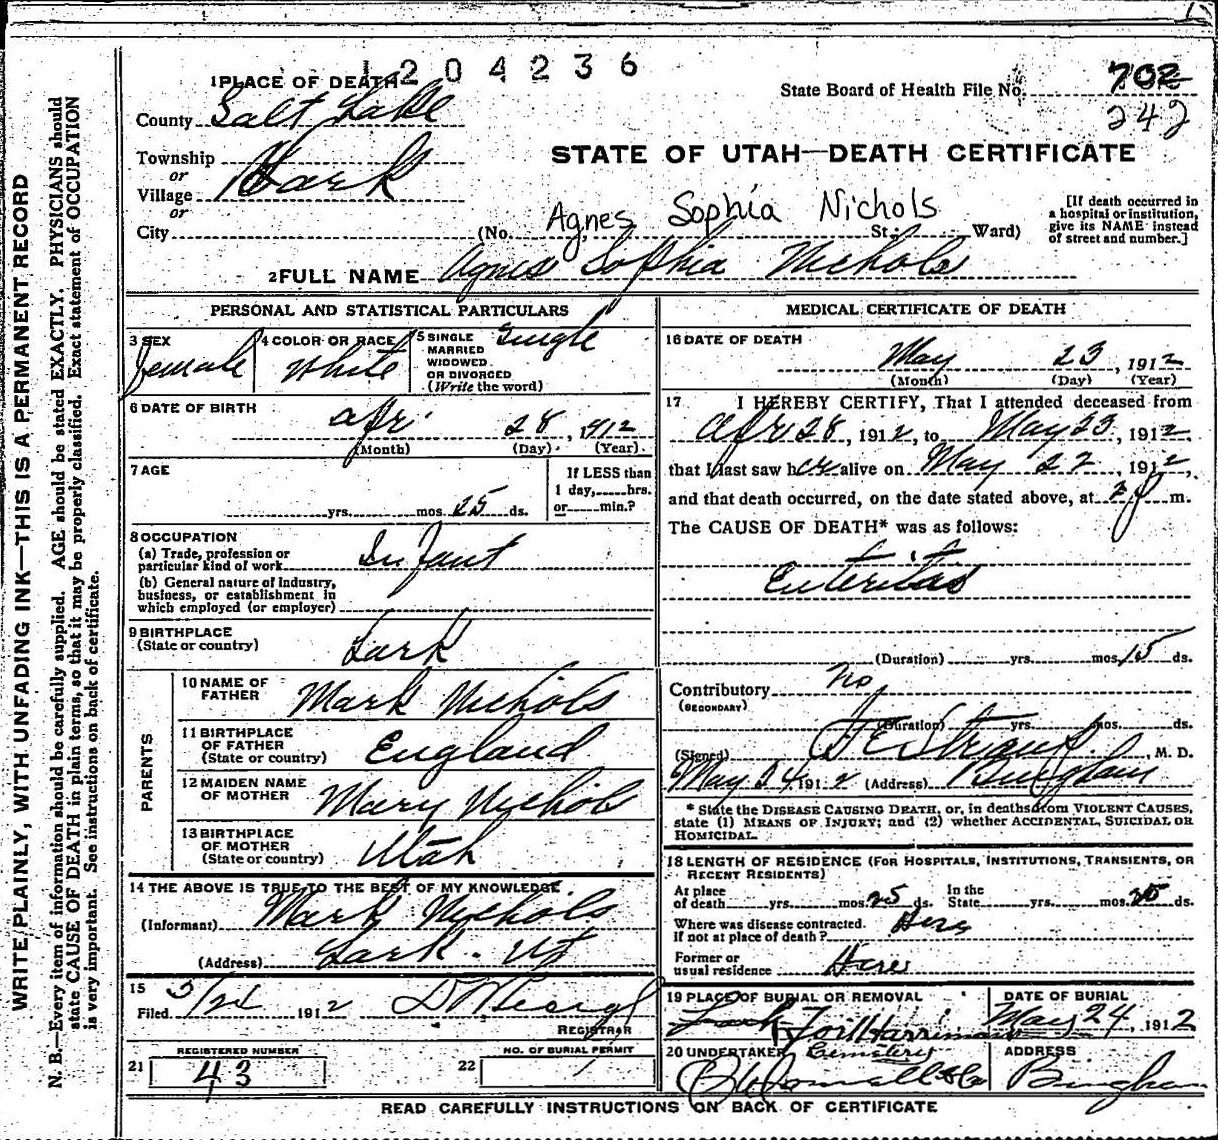 1204236
1 PLACE OF DEATH
State Board of Health File No. 702
242
County Salt Lake
STATE OF UTAH—DEATH CERTIFICATE
Township
or
Village Lark
or
City (No. St.; Ward)
Agnes Sophia Nichols
[If death occurred in
a hospital or institution,
give its NAME instead
of street and number.]
2 FULL NAME Agnes Sophia Nichols
PERSONAL AND STATISTICAL PARTICULARS
3 SEX Female
4 COLOR OR RACE White
5 SINGLE Single
MARRIED
WIDOWED
OR DIVORCED
(Write the word)
6 DATE OF BIRTH Apr. 28, 1912
(Month) (Day) (Year)
7 AGE
yrs. mos. 25 ds.
If LESS than
1 day, hrs.
or min.?
8 OCCUPATION
(a) Trade, profession or
particular kind of work Infant
(b) General nature of industry,
business, or establishment in
which employed (or employer)
9 BIRTHPLACE
(State or country) Lark
PARENTS
10 NAME OF
FATHER Mark Nichols
11 BIRTHPLACE
OF FATHER
(State or country) England
12 MAIDEN NAME
OF MOTHER Mary Nichols
13 BIRTHPLACE
OF MOTHER
(State or country) Utah
14 THE ABOVE IS TRUE TO THE BEST OF MY KNOWLEDGE.
(Informant) Mark Nichols
(Address) Lark. Ut
15
Filed 5/24 1912
REGISTRAR
REGISTERED NUMBER
21 43
NO. OF BURIAL PERMIT
22
MEDICAL CERTIFICATE OF DEATH
16 DATE OF DEATH
May 23, 1912
(Month) (Day) (Year)
17 I HEREBY CERTIFY, That I attended deceased from
Apr 28, 1912, to May 23, 1912,
that I last saw her alive on May 22, 1912,
and that death occurred, on the date stated above, at 2 p m.
The CAUSE OF DEATH* was as follows:
Enteritis
(Duration) yrs. mos. 15 ds.
Contributory No
(SECONDARY)
(Duration) yrs. mos. ds.
(Signed) M. D.
May 24 1912 (Address) Bingham
* State the DISEASE CAUSING DEATH, or, in deaths from VIOLENT CAUSES,
state (1) MEANS OF INJURY; and (2) whether ACCIDENTAL, SUICIDAL OR
HOMICIDAL.
18 LENGTH OF RESIDENCE (FOR HOSPITALS, INSTITUTIONS, TRANSIENTS, OR
RECENT RESIDENTS)
At place
of death yrs. mos. 25 ds.
In the
State yrs. mos. 25 ds.
Where was disease contracted.
If not at place of death? Here
Former or
usual residence Here
19 PLACE OF BURIAL OR REMOVAL
Lark Harriman
Cemetery
DATE OF BURIAL
May 24, 1912
20 UNDERTAKER
ADDRESS
Bingham
READ CAREFULLY INSTRUCTIONS ON BACK OF CERTIFICATE
WRITE PLAINLY, WITH UNFADING INK—THIS IS A PERMANENT RECORD
N. B.—Every item of information should be carefully supplied. AGE should be stated EXACTLY. PHYSICIANS should
state CAUSE OF DEATH in plain terms, so that it may be properly classified. Exact statement of OCCUPATION
is very important. See instructions on back of certificate.